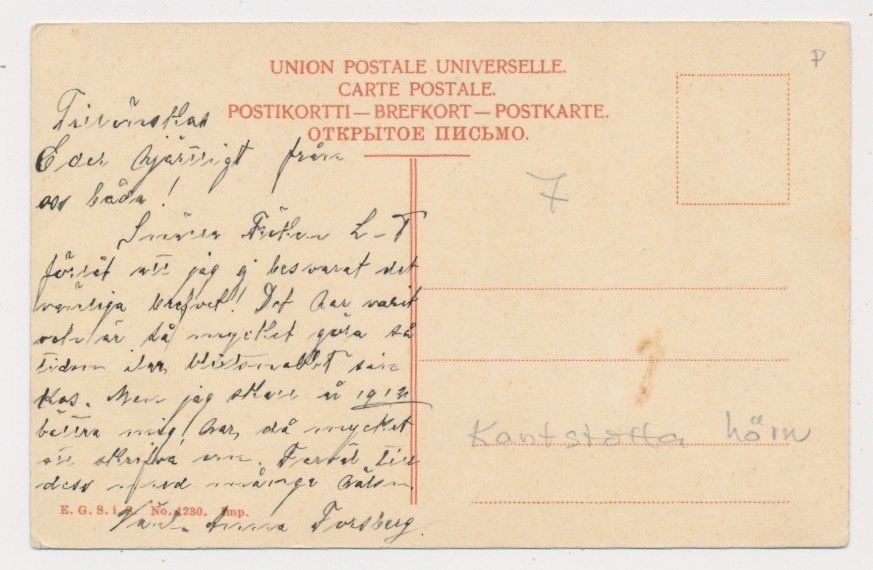 UNION POSTALE UNIVERSELLE.
CARTE POSTALE.
POSTIKORTTI — BREFKORT — POSTKARTE.
ОТКРЫТОЕ ПИСЬМО.
P
7
Tillönskas
Eder hjärtligt från
oss båda!
Snälla Fröken L-T
förlåt att jag ej besvarat det
vänliga brefvet! Det har varit
och är så mycket göra så
tiden har
Men jag skall år 1912
bättra mig! har då mycket
att skrifva om. Farväl till
dess med många hälsn.
Vän. Anna Forsberg.
E. G. S. i. S. No. 1230. Imp.
Kantstötta hörn